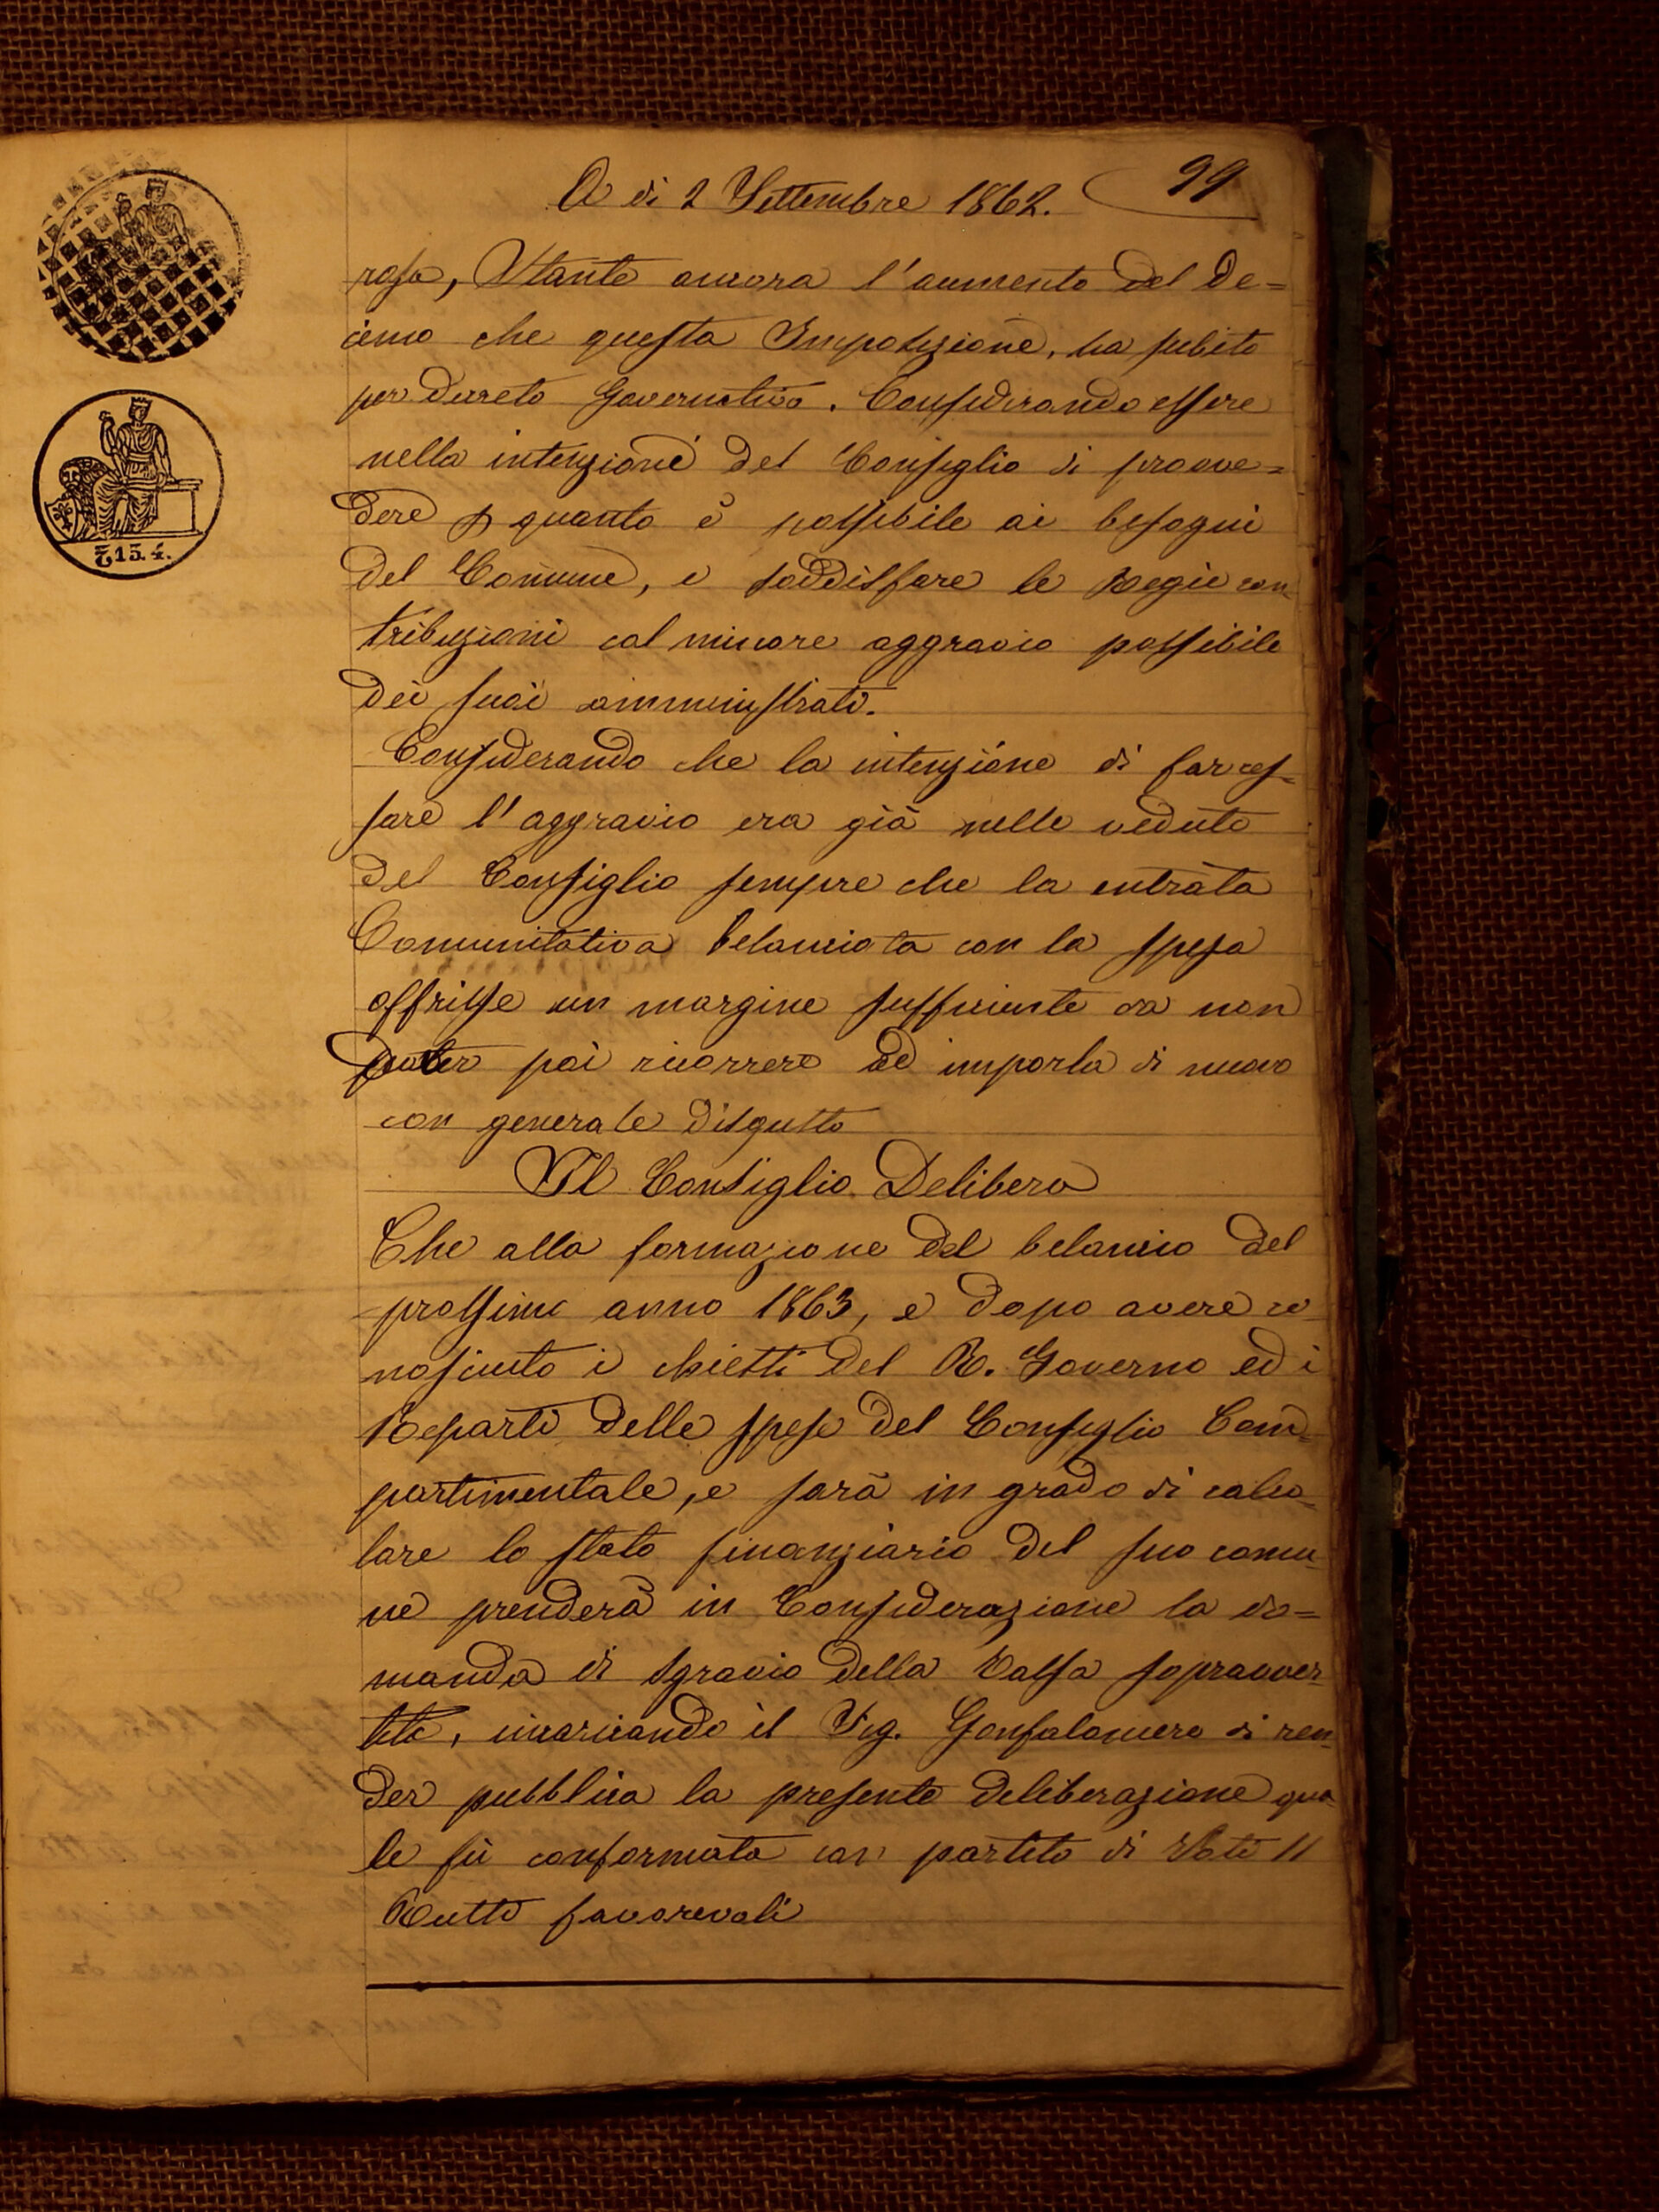 A di 2 Settembre 1862.
99
rosa, Stante ancora l'aumento del De=
cimo che questa Imposizione, ha subito
per Decreto Governativo. Considerando essere
nella intenzione del Consiglio di provve=
dere p quanto è possibile ai bisogni
del Comune, e soddisfare le Regie con
tribuzioni col minore aggravio possibile
dei suoi amministrati.
Considerando che la intenzione di far ces-
sare l'aggravio era già nelle vedute
del Consiglio sempre che la entrata
Comunitativa belanciata con la spesa
offrisse un margine sufficiente da non
poter poi ricorrere ad imporla di nuovo
con generale disgusto
Il Consiglio Delibera
Che alla formazione del belancio del
prossimo anno 1863, e dopo avere co
nosciuto i chiesti del R. Governo ed i
Reparti delle spese del Consiglio Com
partimentale, e sarà in grado di calco
lare lo stato finanziario del suo comu
ne prenderà in Considerazione la do=
manda di sgravio della Tassa sopravver
tita, incaricando il Sig. Gonfaloniere di ren
der pubblica la presente deliberazione qua
le fù conformata con partito di Voti 11
Tutti favorevoli
₶ 15. 4.